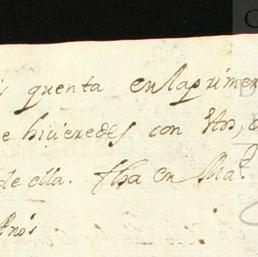 quenta enlaprimer
e hiçieredes con Vos,
de ella. fha en Mad.